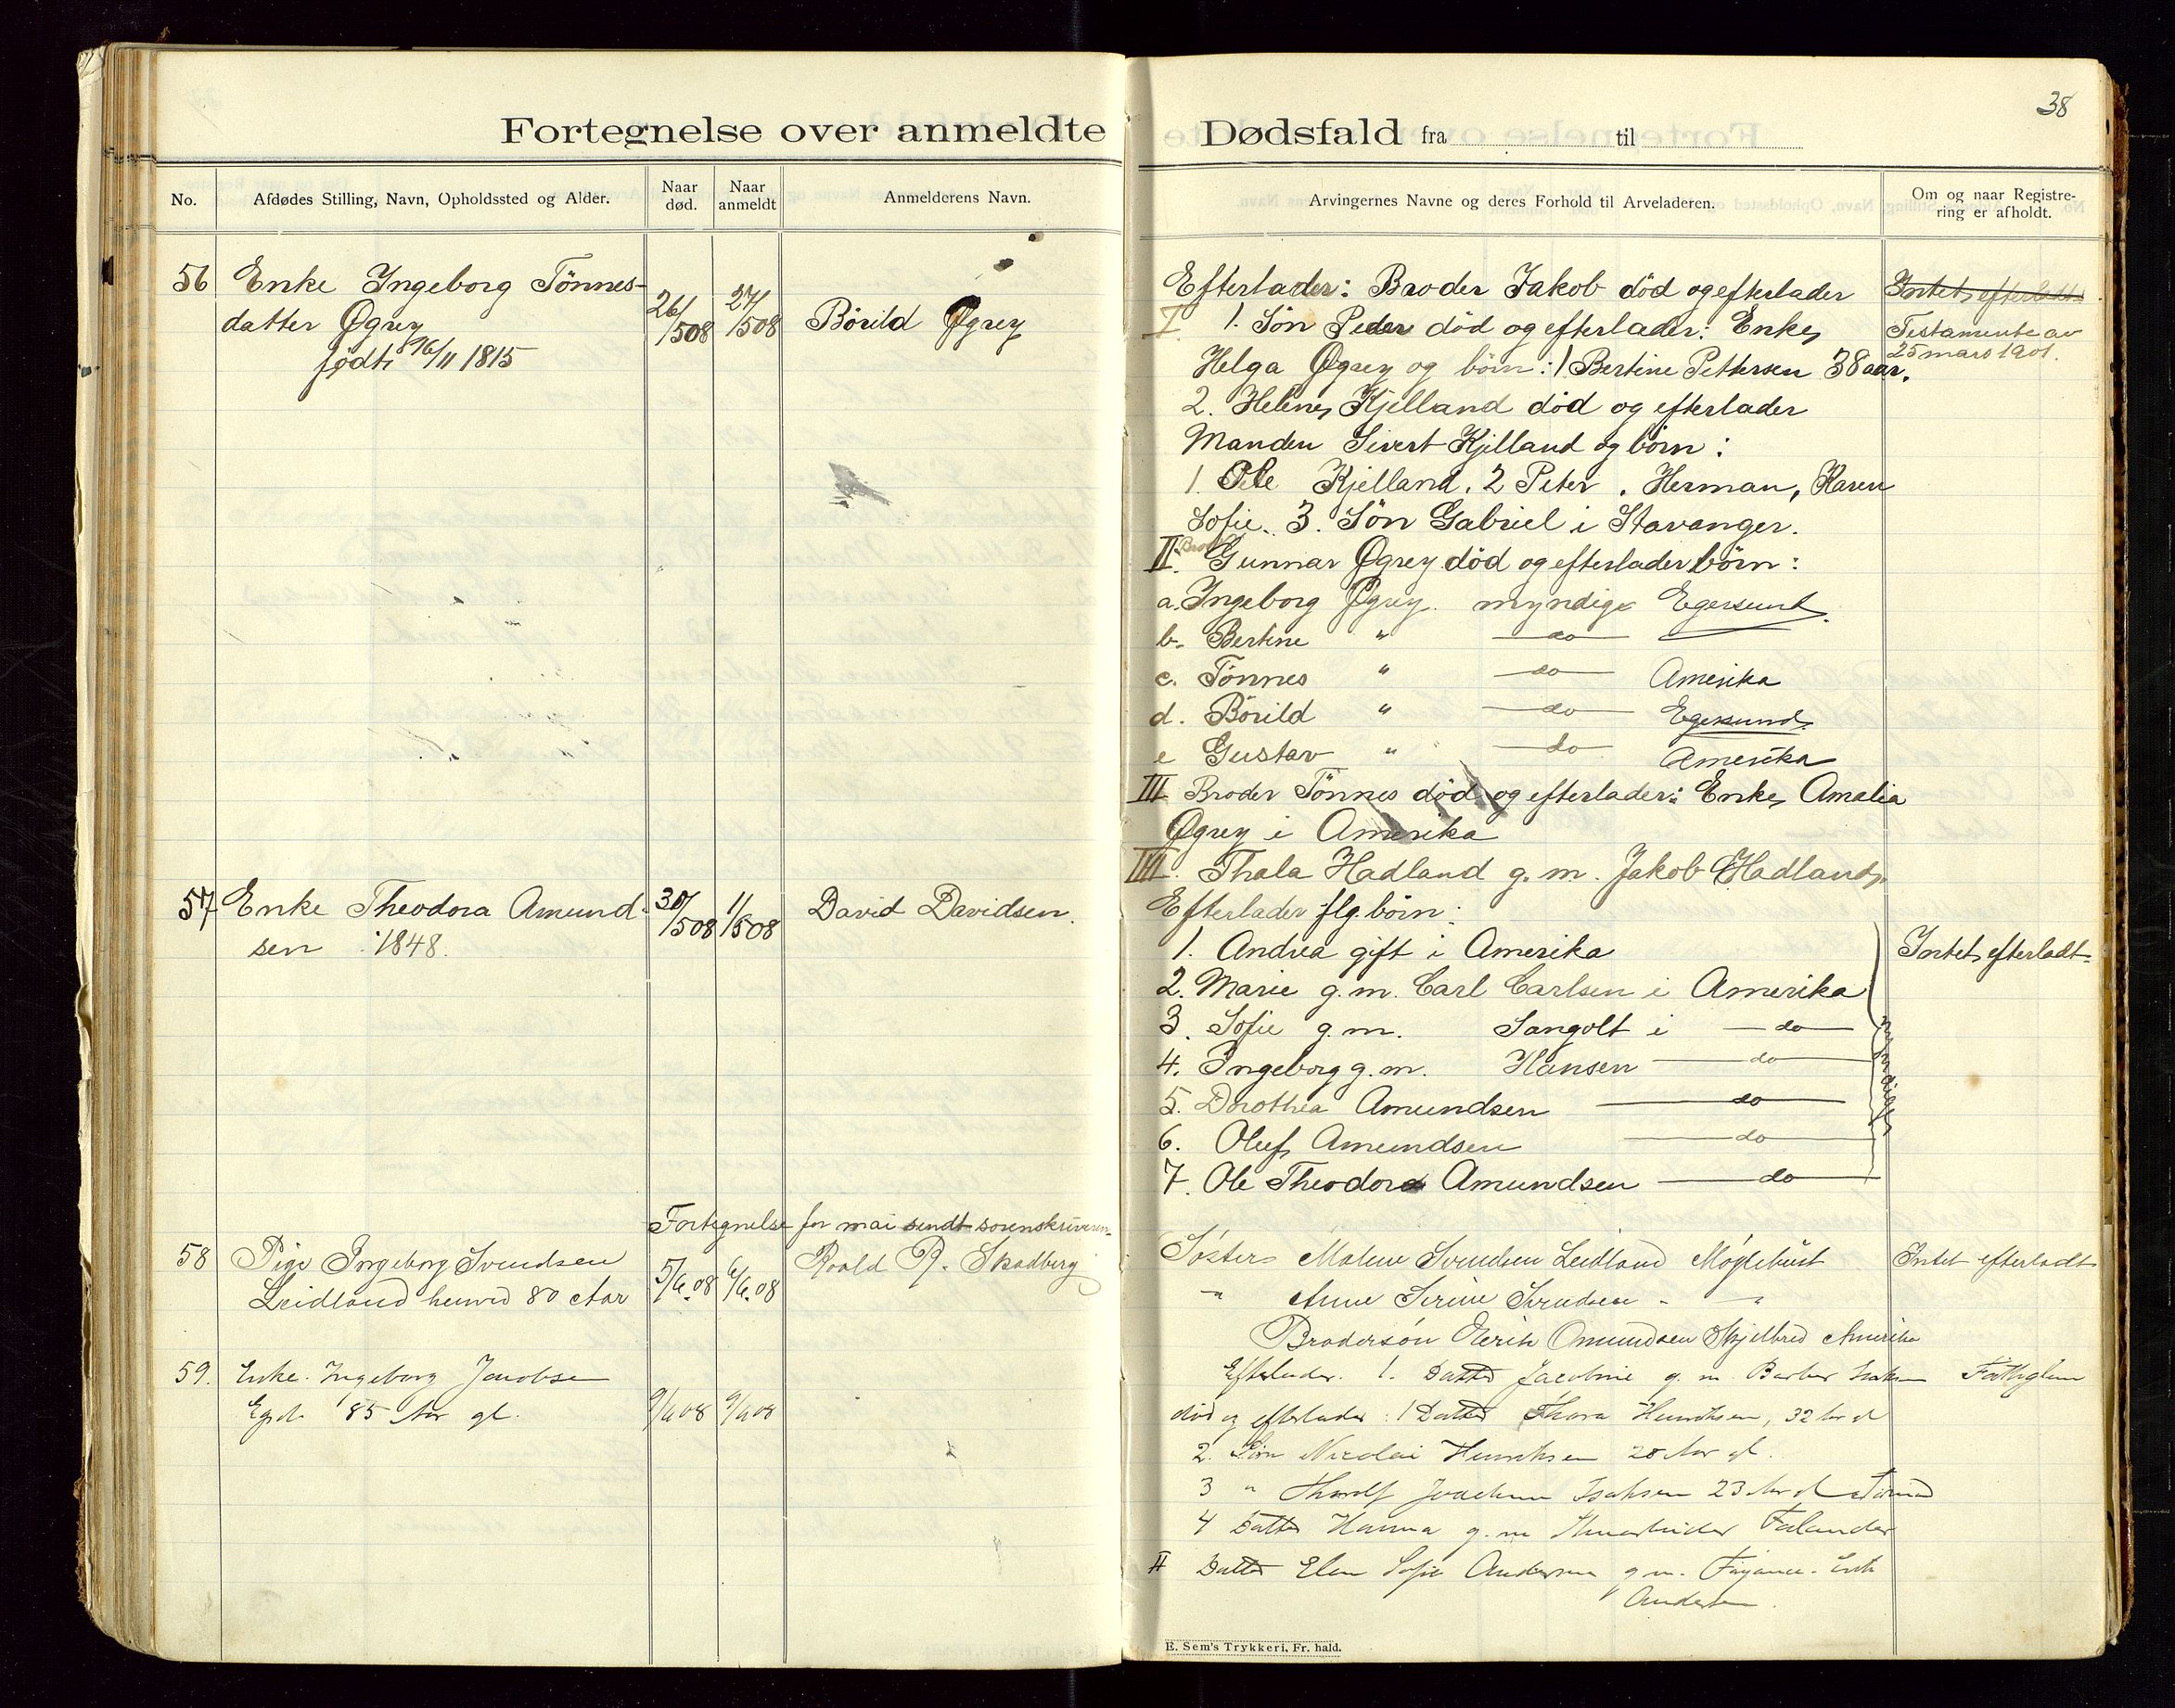 38
Fortegnelse over anmeldte Dødsfald fra til
No.
Afdødes Stilling, Navn, Opholdssted og Alder.
Naar død.
Naar anmeldt
Anmelderens Navn.
Arvingernes Navne og deres Forhold til Arveladeren.
Om og naar Registre-
ring er afholdt.
56 Enke Ingeborg Tönnes-
datter Øgrey
født 16/11 1815
26/508 27/508 Börild Øgrey
Efterlader: Broder Jakob död og efterlader
I 1. Sön Peder död og efterlader: Enke
Helga Øgrey og börn: 1 Bertine Pettersen 38 aar.
2. Helene Kjelland död og efterlader
Manden Sivert Kjelland og börn:
1. Ole Kjelland. 2 Peter. Herman, Karen
Sofie. 3. Sön Gabriel i Stavanger.
II. Broder Gunnar Øgrey död og efterlader börn:
a. Ingeborg Øgrey. myndige Egersund.
b. Bertine " do
c. Tönnes " do Amerika
d. Börild " do Egersund
e Gustav " do Amerika
III Broder Tönnes död og efterlader: Enke Amalia
Øgrey i Amerika
IIII. Thala Hadland g.m. Jakob Hadland.
Intet efterladt
Testamente av
25 mars 1901.
57 Enke Theodora Amund-
sen 1848.
30/508 1/608 David Davidsen.
Efterlader flg. börn:
1. Andrea gift i Amerika
2. Marie g.m. Carl Carlsen i Amerika
3. Sofie g.m. Sangolt i do
4. Ingeborg g.m. Hansen do
5. Dorothea Amundsen do
6. Oluf Amundsen do
7. Ole Theodor Amundsen do
myndige
Intet efterladt
Fortegnelse for mai sendt sorenskriveren
58 Pige Ingeborg Svendsen
Leidland henved 80 Aar
5/6.08 6/6.08 Roald R. Skadberg
Söster Malene Svendsen Leidland Möglebust
" Anne Serine Svendsen " "
Brodersön Eerik Omundsen Skjelbred Amerika
Intet efterladt
59. Enke Ingeborg Jacobsen
Egsd. 85 Aar gl.
9/6 08 9/6 08
Efterlader. 1. Datter Jacobine g. m. Barber Isaksen
död og efterlader: 1 Datter Thora Henriksen, 32 Aar gl
2. Sön Nicolai Henriksen 28 Aar gl.
3 " Thorolf Joachim Isaksen 23 Aar gl
4 Datter Hanna g. m Falander
II Datter Elen Sofie Andersen g m. Fajance. Erik
Andersen.
Fattiglem
E. Sem's Trykkeri, Fr. hald.